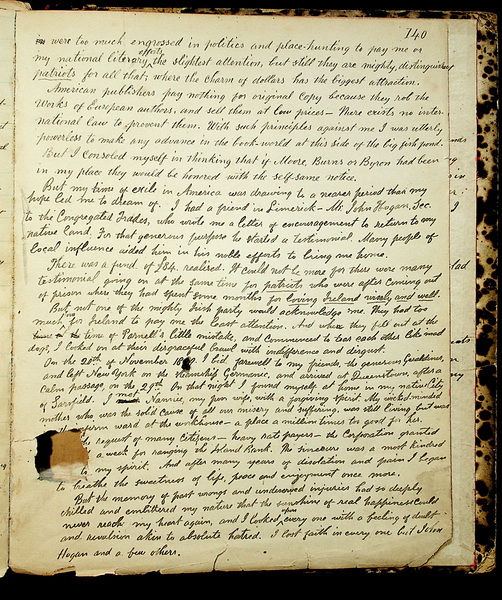 140
were too much engrossed in politics and place-hunting to pay me or
my national literary efforts the slightest attention, but still they are mighty, distinguished
patriots for all that; where the charm of dollars has the biggest attraction.
American publishers pay nothing for original copy because they rob the
Works of European authors, and sell them at low prices — There exists no inter-
national law to prevent them. With such principles against me I was utterly
powerless to make any advance in the book-world at this side of the big fish pond.
But I consoled myself in thinking that if Moore, Burns or Byron had been
in my place they would be honored with the self-same notice.
But my time of exile in America was drawing to a nearer period than my
hope led me to dream of. I had a friend in Limerick — Mr. John Hogan, Sec.
to the Congregated Trades, who wrote me a letter of encouragement to return to my
native land. For that generous purpose he started a testimonial. Many people of
local influence aided him in his noble efforts to bring me home.
There was a fund of £84. realized. It could not be more for there were many
testimonial going on at the same time for patriots who were after coming out
of prison where they had spent some months for loving Ireland wisely and well.
But not one of the mighty Irish party would acknowledge me. They had too
much for Ireland to pay me the least attention. And when they fell out at the
time of Parnell's little mistake, and commenced to tear each other like mad
dogs, I looked on at their disgraceful brawl with indifference and disgust.
On the 20th of November I bid farewell to my friends, the generous
and left New York on the Steamship Germanic, and arrived at Queenstown, after a
calm passage, on the 29th On that night I found myself at home in my native City
of Sarsfield. I met Nannie, my own wife, with a forgiving spirit. My wicked minded
mother who was the solid cause of all our misery and suffering, was still living but was
infirm ward at the workhouse — a place a million times too good for her.
request of many Citizens — heavy rate payers — the Corporation granted
a week for ranging the Island Bank. The sinecure was a most kindred
to my spirit. And after many years of desolation and pain I began
to breathe the sweetness of life, peace and enjoyment once more.
But the memory of past wrongs and undeserved injuries had so deeply
chilled and embittered my nature that the sunshine of real happiness could
never reach my heart again, and I looked upon every one with a feeling of doubt
and revulsion akin to absolute hatred. I lost faith in every one but John
Hogan and a few others.